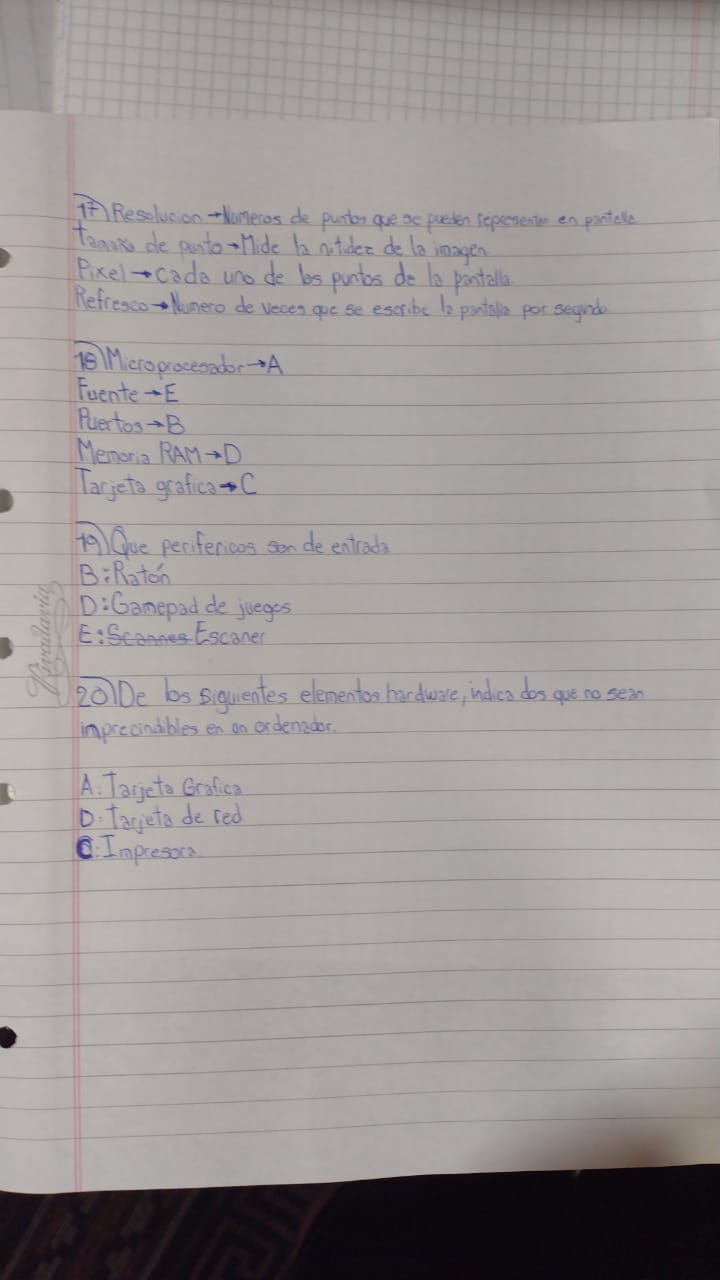 17) Resolucion → Numeros de puntos que se pueden representar en pantalla
tamaño de punto → Mide la nitidez de la imagen
Pixel → cada uno de los puntos de la pantalla
Refresco → Numero de veces que se escribe la pantalla por segundo
18) Microprocesador → A
Fuente → E
Puertos → B
Memoria RAM → D
Tarjeta grafica → C
19) Que perifericos son de entrada
B: Ratón
D: Gamepad de juegos
E: Scannes Escaner
20) De los siguientes elementos hardware, indica dos que no sean
imprecindibles en un ordenador.
A: Tarjeta Grafica
D: Tarjeta de red
C: Impresora.
Rivadavia